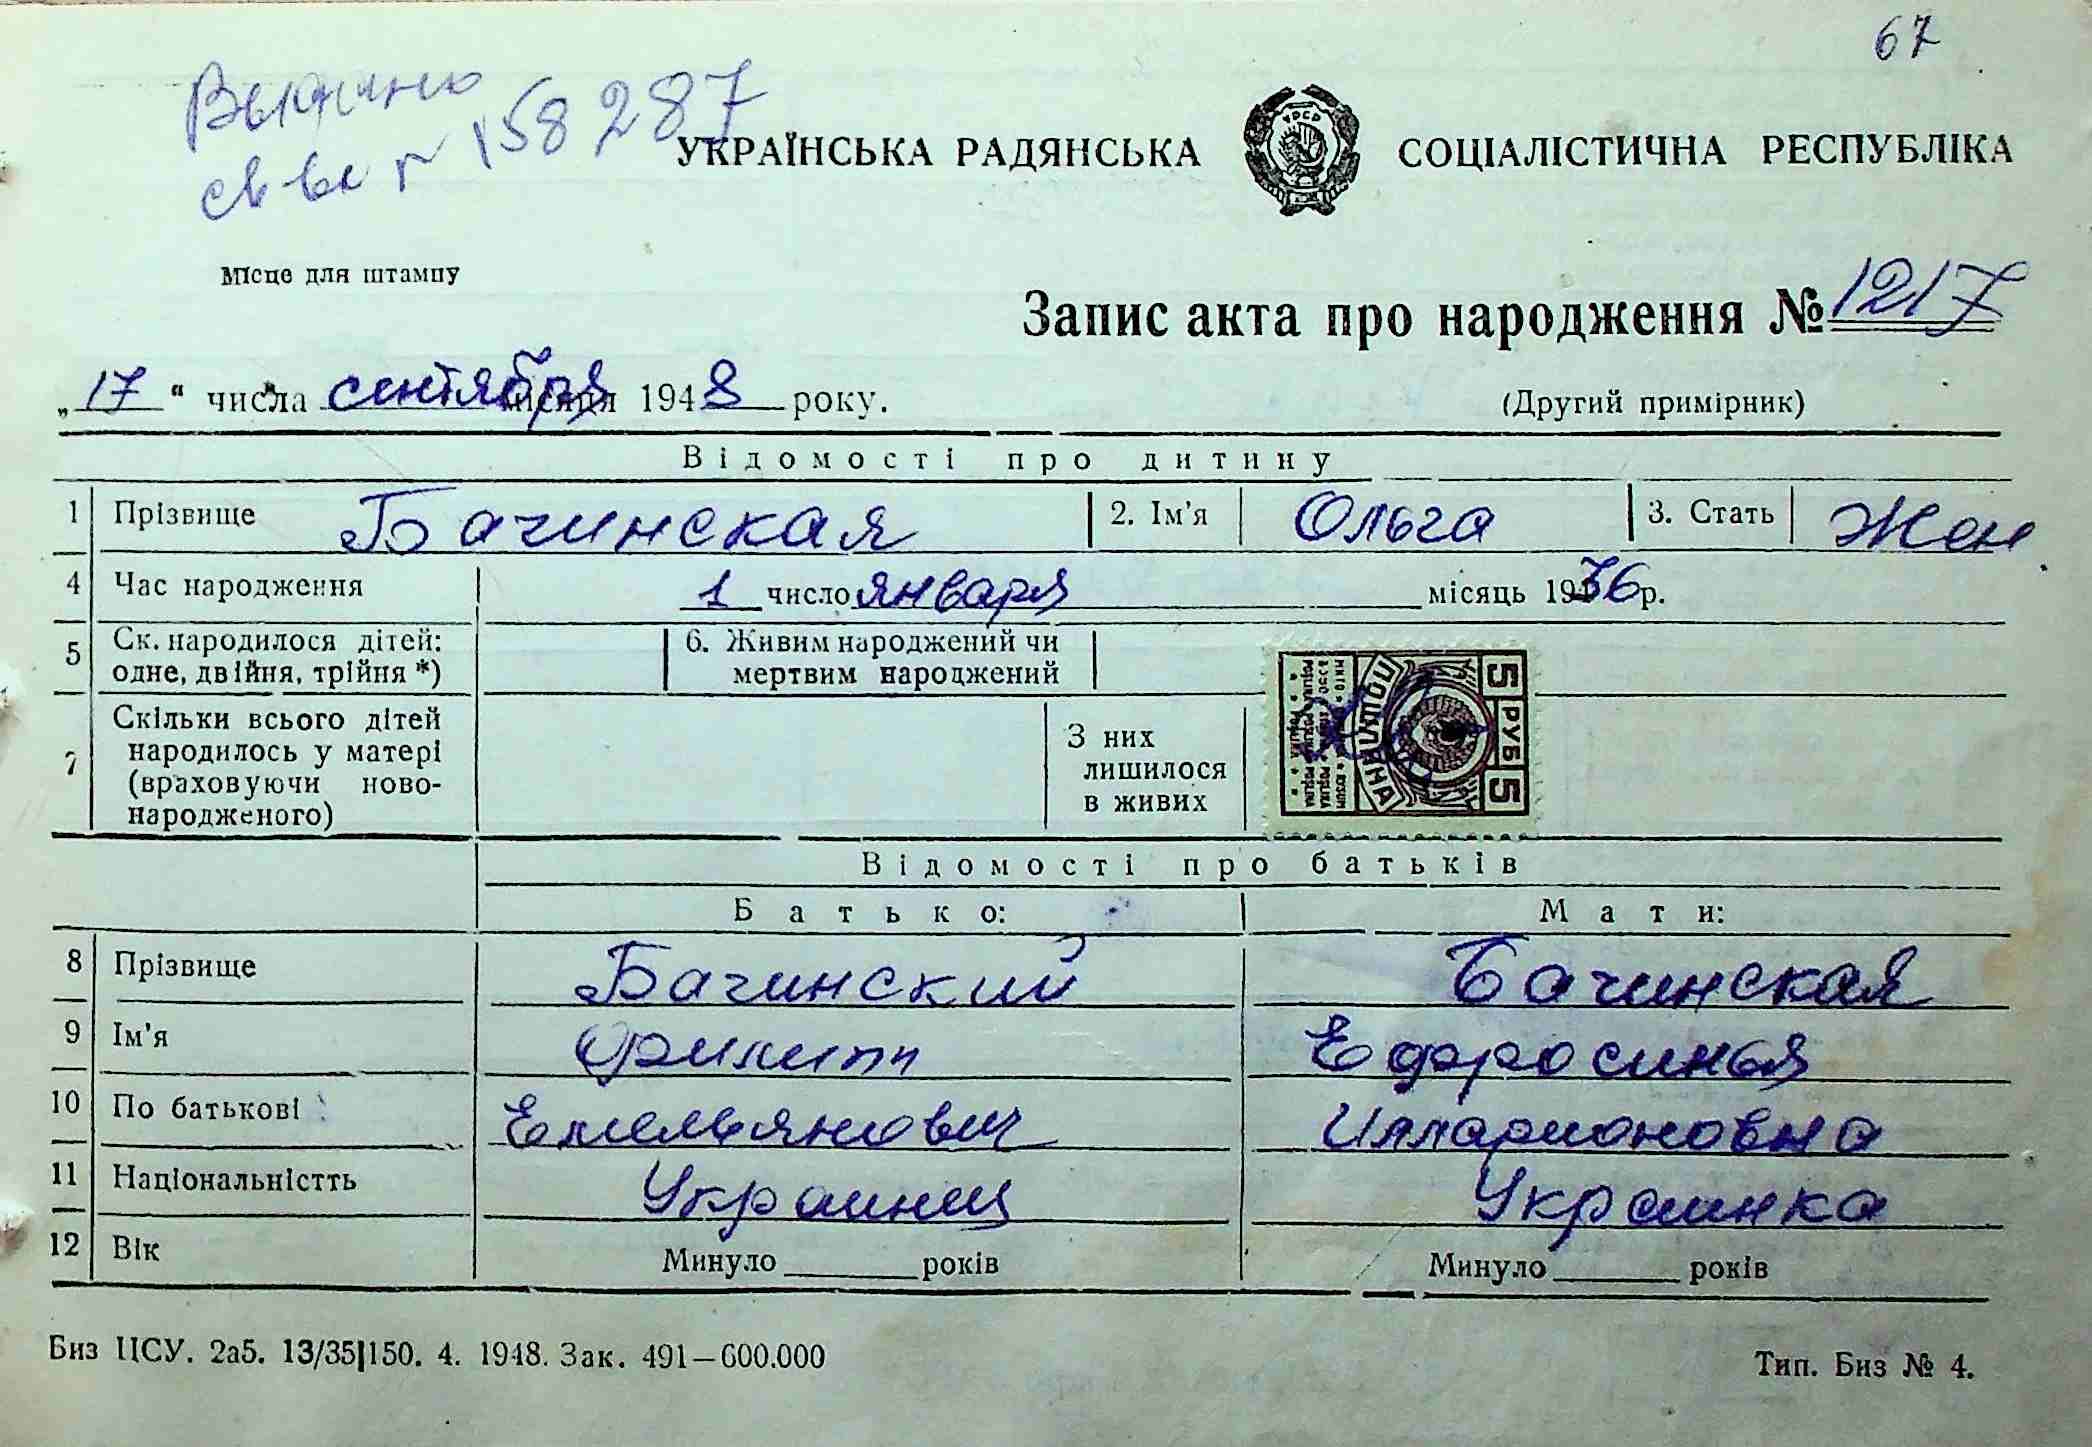 67
Выдано
св во № 158287
УКРАЇНСЬКА РАДЯНСЬКА СОЦІАЛІСТИЧНА РЕСПУБЛІКА
УРСР
Місце для штампу
Запис акта про народження № 1217
„17“ числа сентября місяця 1948 року.
(Другий примірник)
Відомості про дитину
1 Прізвище Бачинская 2. Ім'я Ольга 3. Стать Жен
4 Час народження 1 число января місяць 1936 р.
5 Ск. народилося дітей: одне, двійня, трійня *) 6. Живим народжений чи мертвим народжений
7 Скільки всього дітей народилось у матері (враховуючи ново-народженого) З них лишилося в живих
5 РУБ 5
ПОШЛИНА
Відомості про батьків
Батько: Мати:
8 Прізвище Бачинский Бачинская
9 Ім'я Филипп Ефросинья
10 По батькові Емельянович Илларионовна
11 Національністть Украинец Украинка
12 Вік Минуло ____ років Минуло ____ років
Биз ЦСУ. 2а5. 13/35|150. 4. 1948. Зак. 491—600.000
Тип. Биз № 4.